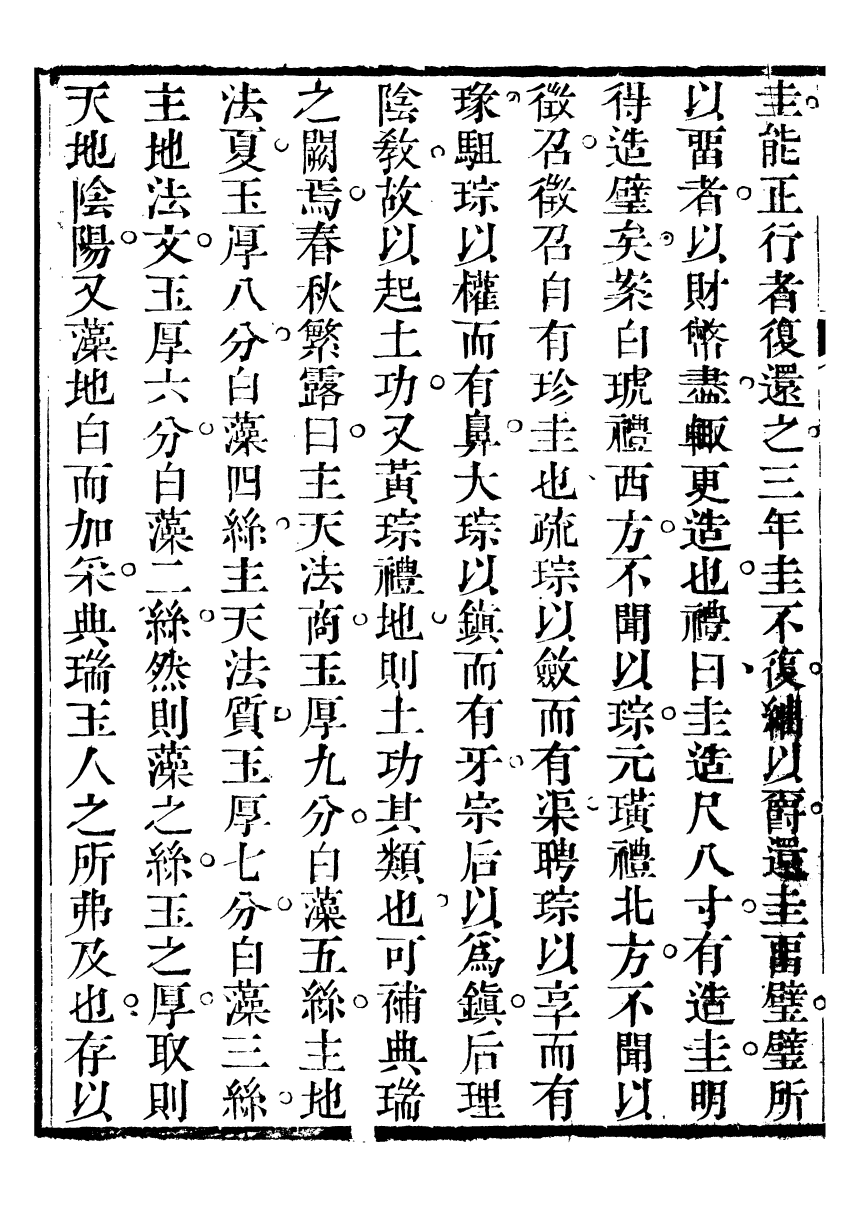 圭能正行者復還之三年圭不復紬以爵還圭畱璧璧所
以畱者以財幣盡輙更造也禮曰圭造尺八寸有造圭明
得造璧矣案白琥禮西方不聞以琮元璜禮北方不聞以
徵召徵召自有珍圭也疏琮以斂而有渠聘琮以享而有
瑑駔琮以權而有鼻大琮以鎮而有牙宗后以爲鎮后理
陰敎故以起土功又黃琮禮地則土功其類也可補典瑞
之闕焉春秋繁露曰主天法商玉厚九分白藻五絲主地
法夏玉厚八分白藻四絲主天法質玉厚七分白藻三絲
主地法文玉厚六分白藻二絲然則藻之絲玉之厚取則
天地陰陽又藻地白而加采典瑞玉人之所弗及也存以